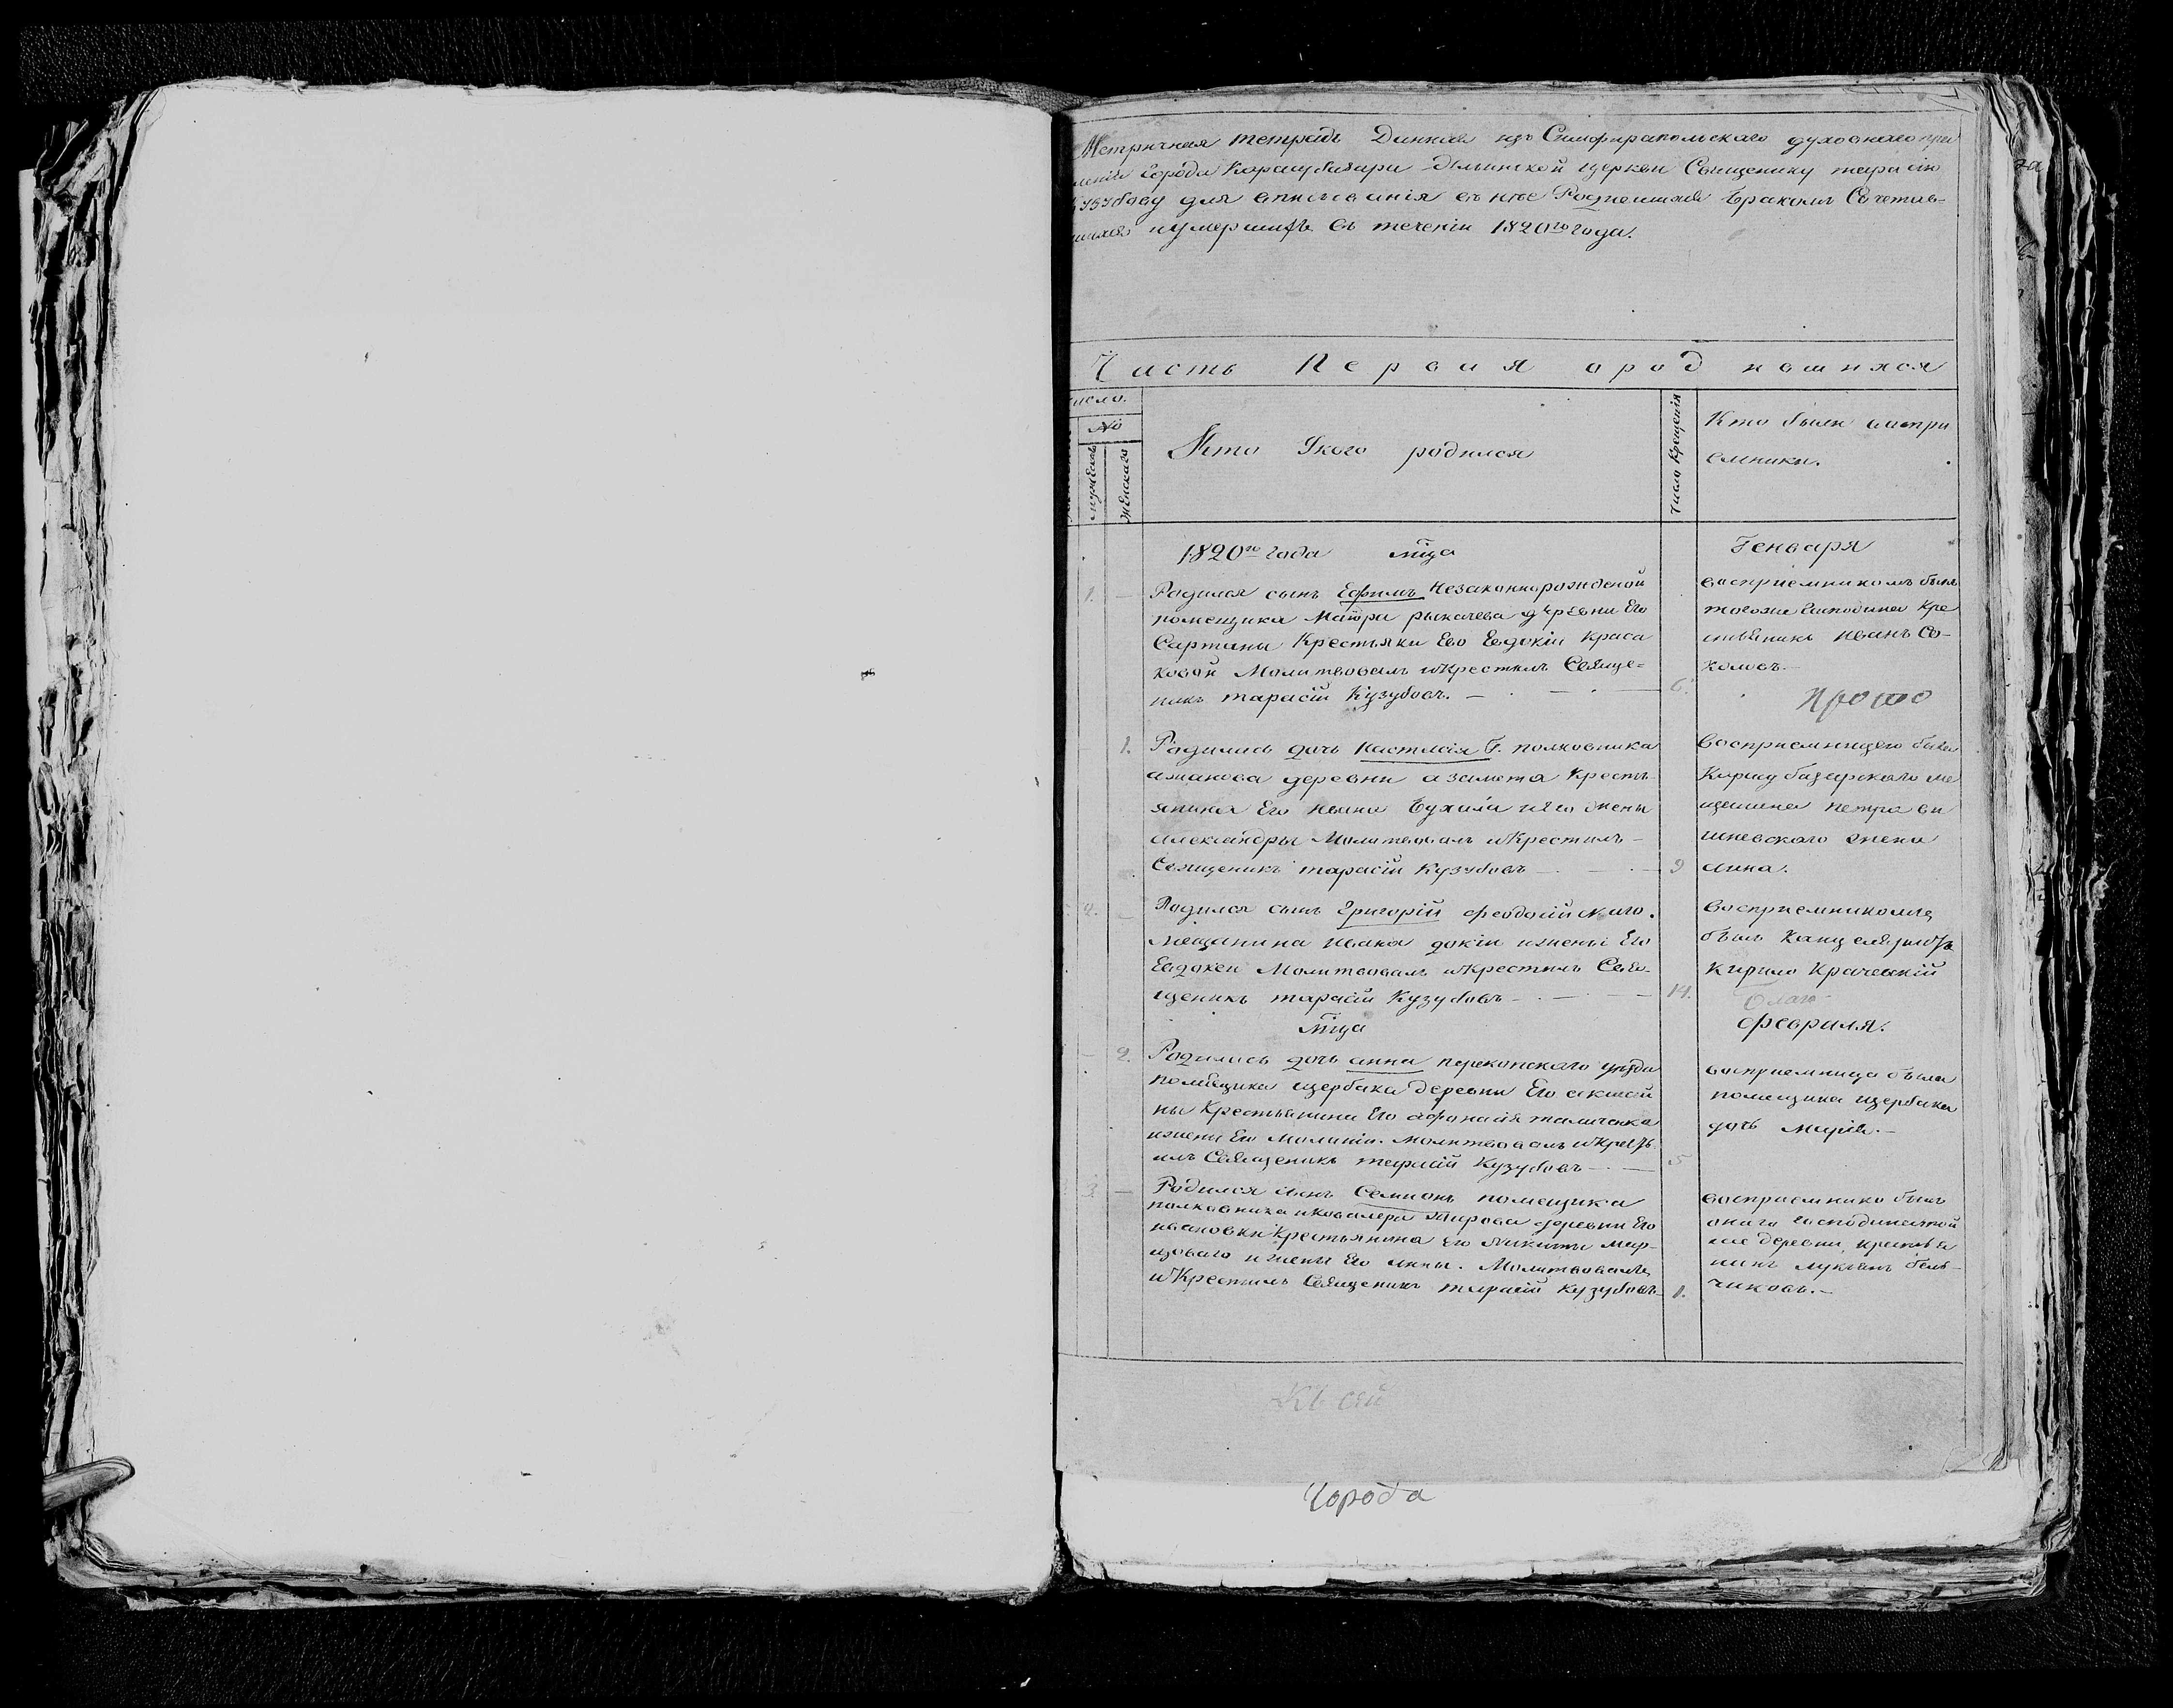 Метричная тетрадь Данная изъ Симфирапольскаго духовнаго пра
города Карасубазара Ильинской церкви Священику тарасію
Кузубову для вписыванія въ нее Родившихся Бракомъ Сочетав-
шихся иумершихъ въ теченіи 1820го года.
Часть Первая о родившихся
Число.
№
мужеска
женскаго
Кто Укого родился
Число Крещенія
Кто были воспри
емники.
1820го года мца Генваря
1. — Родился сынъ Ефимъ Незаконнорожденой
помещика Маіора рыкачева деревни Его
Сартаны Крестьянки Его Евдокіи Краса
ковой Молитвовалъ иКрестилъ Священ=
никъ тарасій Кузубовъ. — 6.
восприемникомъ былъ
тогоже господина Кре
стьянинъ Иванъ Со-
коловъ.—
Прото
1. Родилась дочь Настасія Г. полковника
деревни азамета Кресть-
янина Его Ивана Бухила иего жены
Александры Молитвовалъ иКрестилъ -
Священикъ тарасій Кузубовъ — 9
восприемницею была
Карасубазарского ме
щанина Петра ви
шневского жена
Анна.
2. Родился сынъ Григорій феодосійскаго.
мещанина Ивана докіи ижены Его
Евдокеи Молитвовалъ иКрестилъ Свя-
щеникъ тарасій Кузубовъ — 14.
восприемникомъ
былъ Канцеляристъ
Кирило Крачевскій
благо
мца февраля.
— 2. Родилась дочь анна перекопскаго уезда
помещика щербака деревни Его
ны Крестьянина Его афонасія
ижены Его Меланіи. Молитвовалъ иКрест
илъ Священикъ тарасій Кузубовъ — 5
восприемница была
помещика щербака
дочь Марія.—
3. — Родился сынъ Семионъ помещика
полковника икавалера деревни Его
ивановки Крестьянина Его Никиты Мир-
цоваго ижены Его анны. Молитвовалъ
иКрестилъ Священикъ тарасій Кузубовъ 1.
восприемнико былъ
онаго господина той
же деревни, крестья
нинъ лукьянъ бель-
чиковъ.—
Къ сей
Города